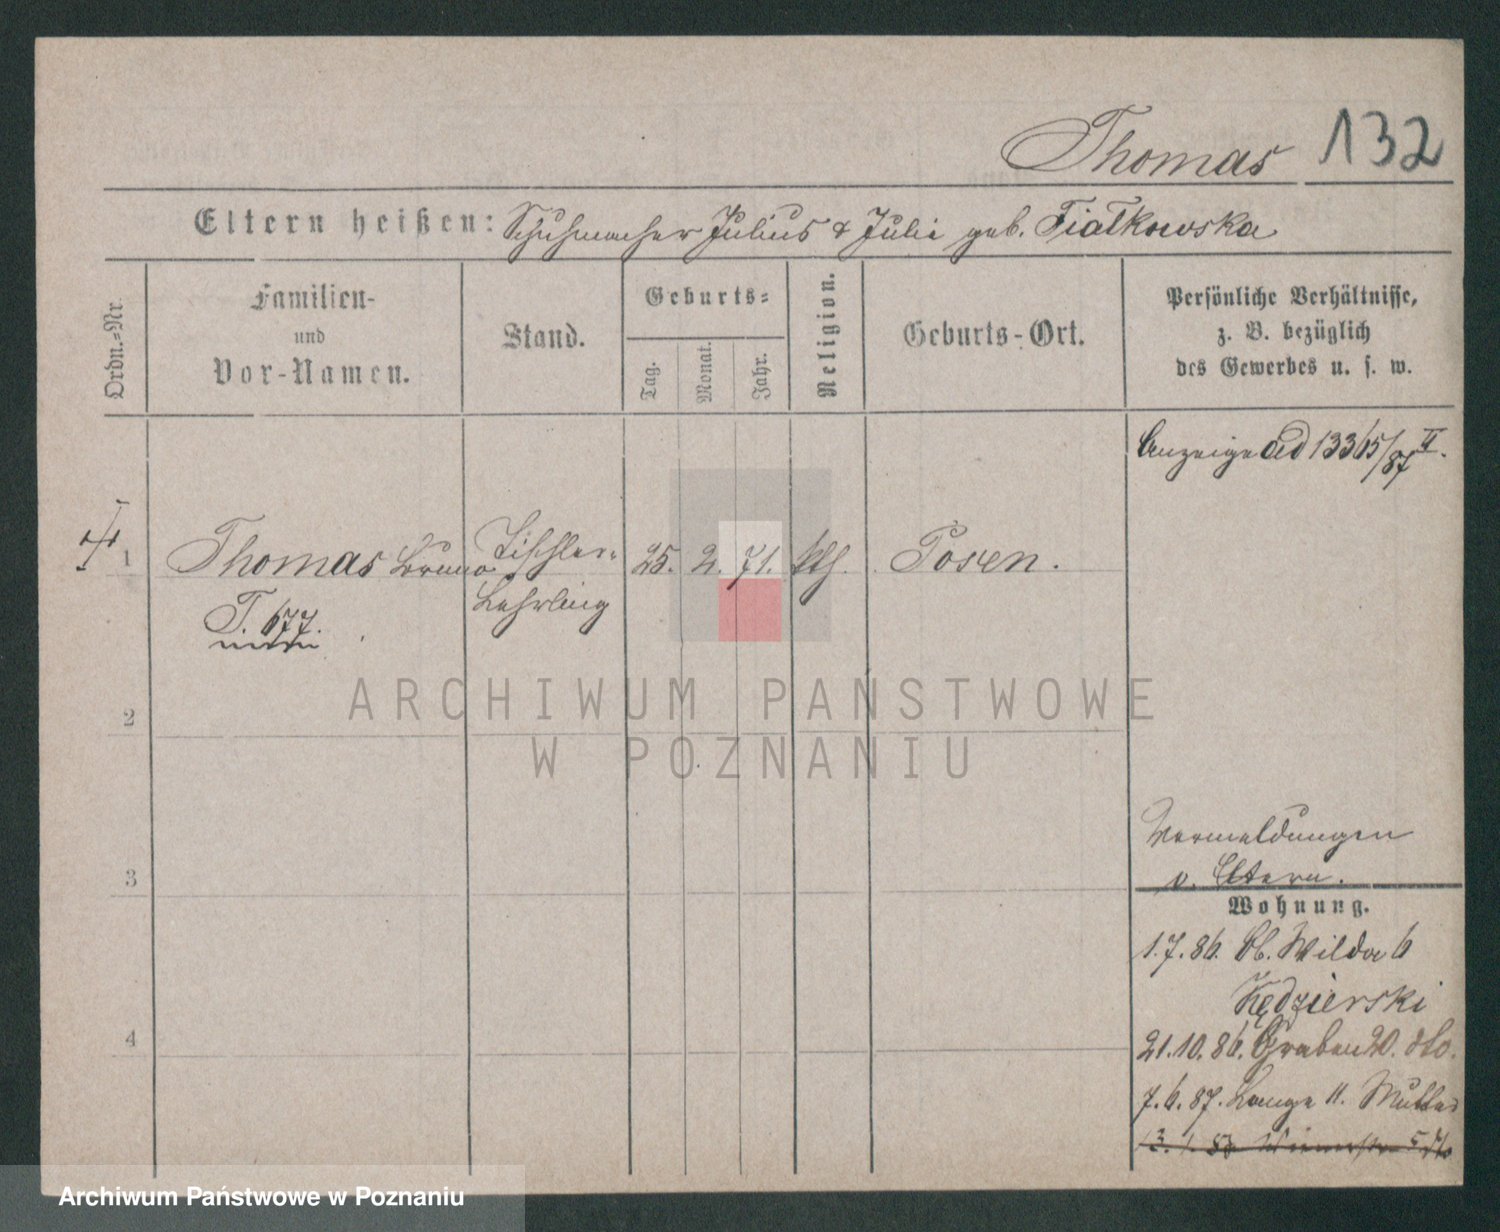 Thomas 132
Eltern heißen: Schuhmacher Julius & Julie geb. Fiałkowska
Ordn.-Nr.
Familien-
und
Vor-Namen.
Stand.
Geburts-
Tag.
Monat.
Jahr.
Religion.
Geburts-Ort.
Persönliche Verhältnisse,
z. B. bezüglich
des Gewerbes u. s. w.
Anzeige ad 13365/87 II.
1 Thomas Bruno Tischler- 25. 2. 71. kth. Posen.
Lehrling
T. 677.
2
3
4
Vermeldungen
v. Eltern.
Wohnung.
1.7.86. Ob. Wilda 6
Kędzierski
21.10.86. Graben 20. dto.
7.6.87. Lange 11. Mutter
ARCHIWUM PAŃSTWOWE
W POZNANIU
Archiwum Państwowe w Poznaniu